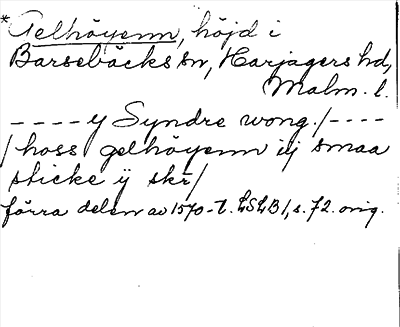 *Gelhöyenn, höjd i
Barsebäcks sn, Harjagers hd,
Malm. l.
----y Syndre wong./----
/hoss gelhöyenn iij smaa
sticke ÿ skr/
förra delen av 1570-t. LSLB1, s. 72. orig.